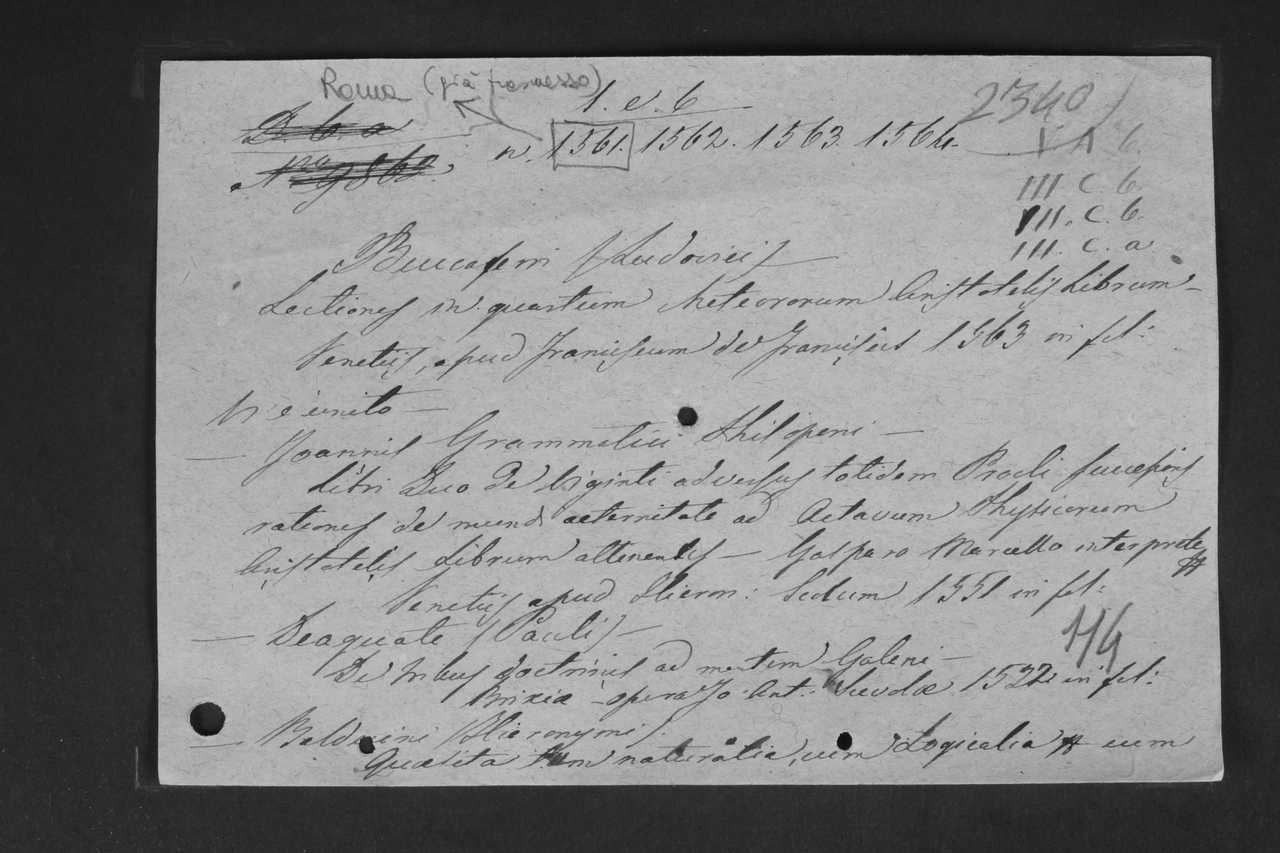 Roma (già promesso)
1. e. 6
2340
n. 1561. 1562. 1563. 1564.
V A 6.
III. C. 6.
VII. C. 6.
III. C. a
Buccaferri (Ludovici)
Lectiones in quartum Meteororum Aristotelis Librum —
Venetiis, apud Franciscum de Franciscis 1563 in fol:
Vi è unito —
— Joannis Grammatici Philoponi —
Libri Duo de Viginti adversus totidem Procli successoris
rationes de mundi aeternitate ad Octavum Physicorum
Aristotelis Librum attinentes — Gasparo Marcello interprete
Venetiis apud Hieron: Scotum 1551 in fol:
— Deaquate (Pauli) —
114
De tribus doctrinis ad mentem Galeni —
Brixiae opera Jo. Ant: 1522 in fol:
— Balduini (Hieronymi).
Quaesita tum naturalia, cum Logicalia cum